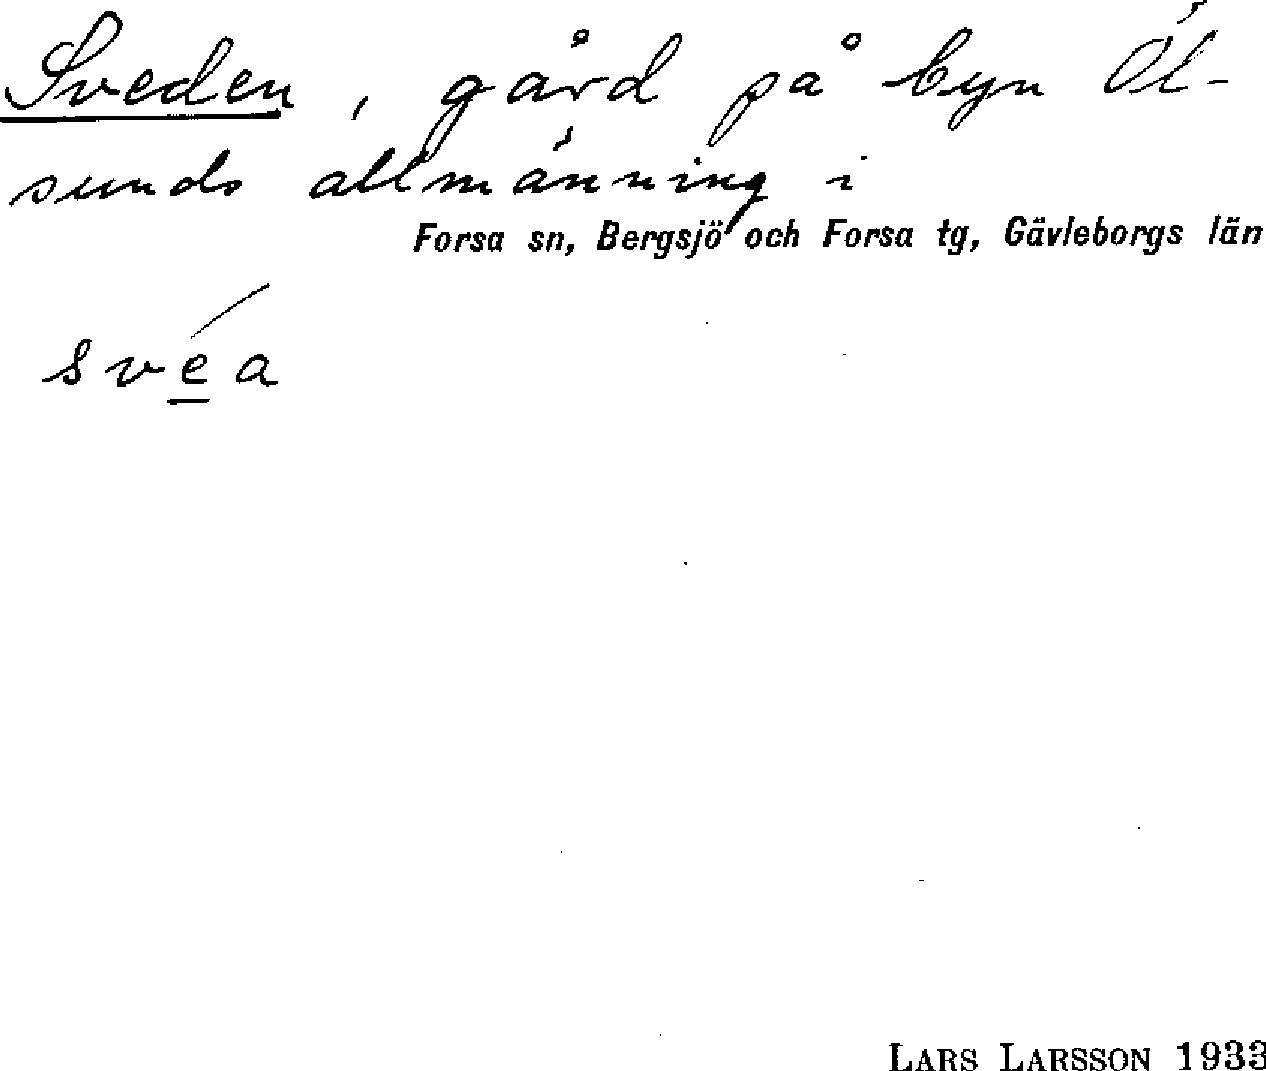 Sveden, gård på byn Öl-
sunds allmänning i
Forsa sn, Bergsjö och Forsa tg, Gävleborgs län
svéa
LARS LARSSON 1933